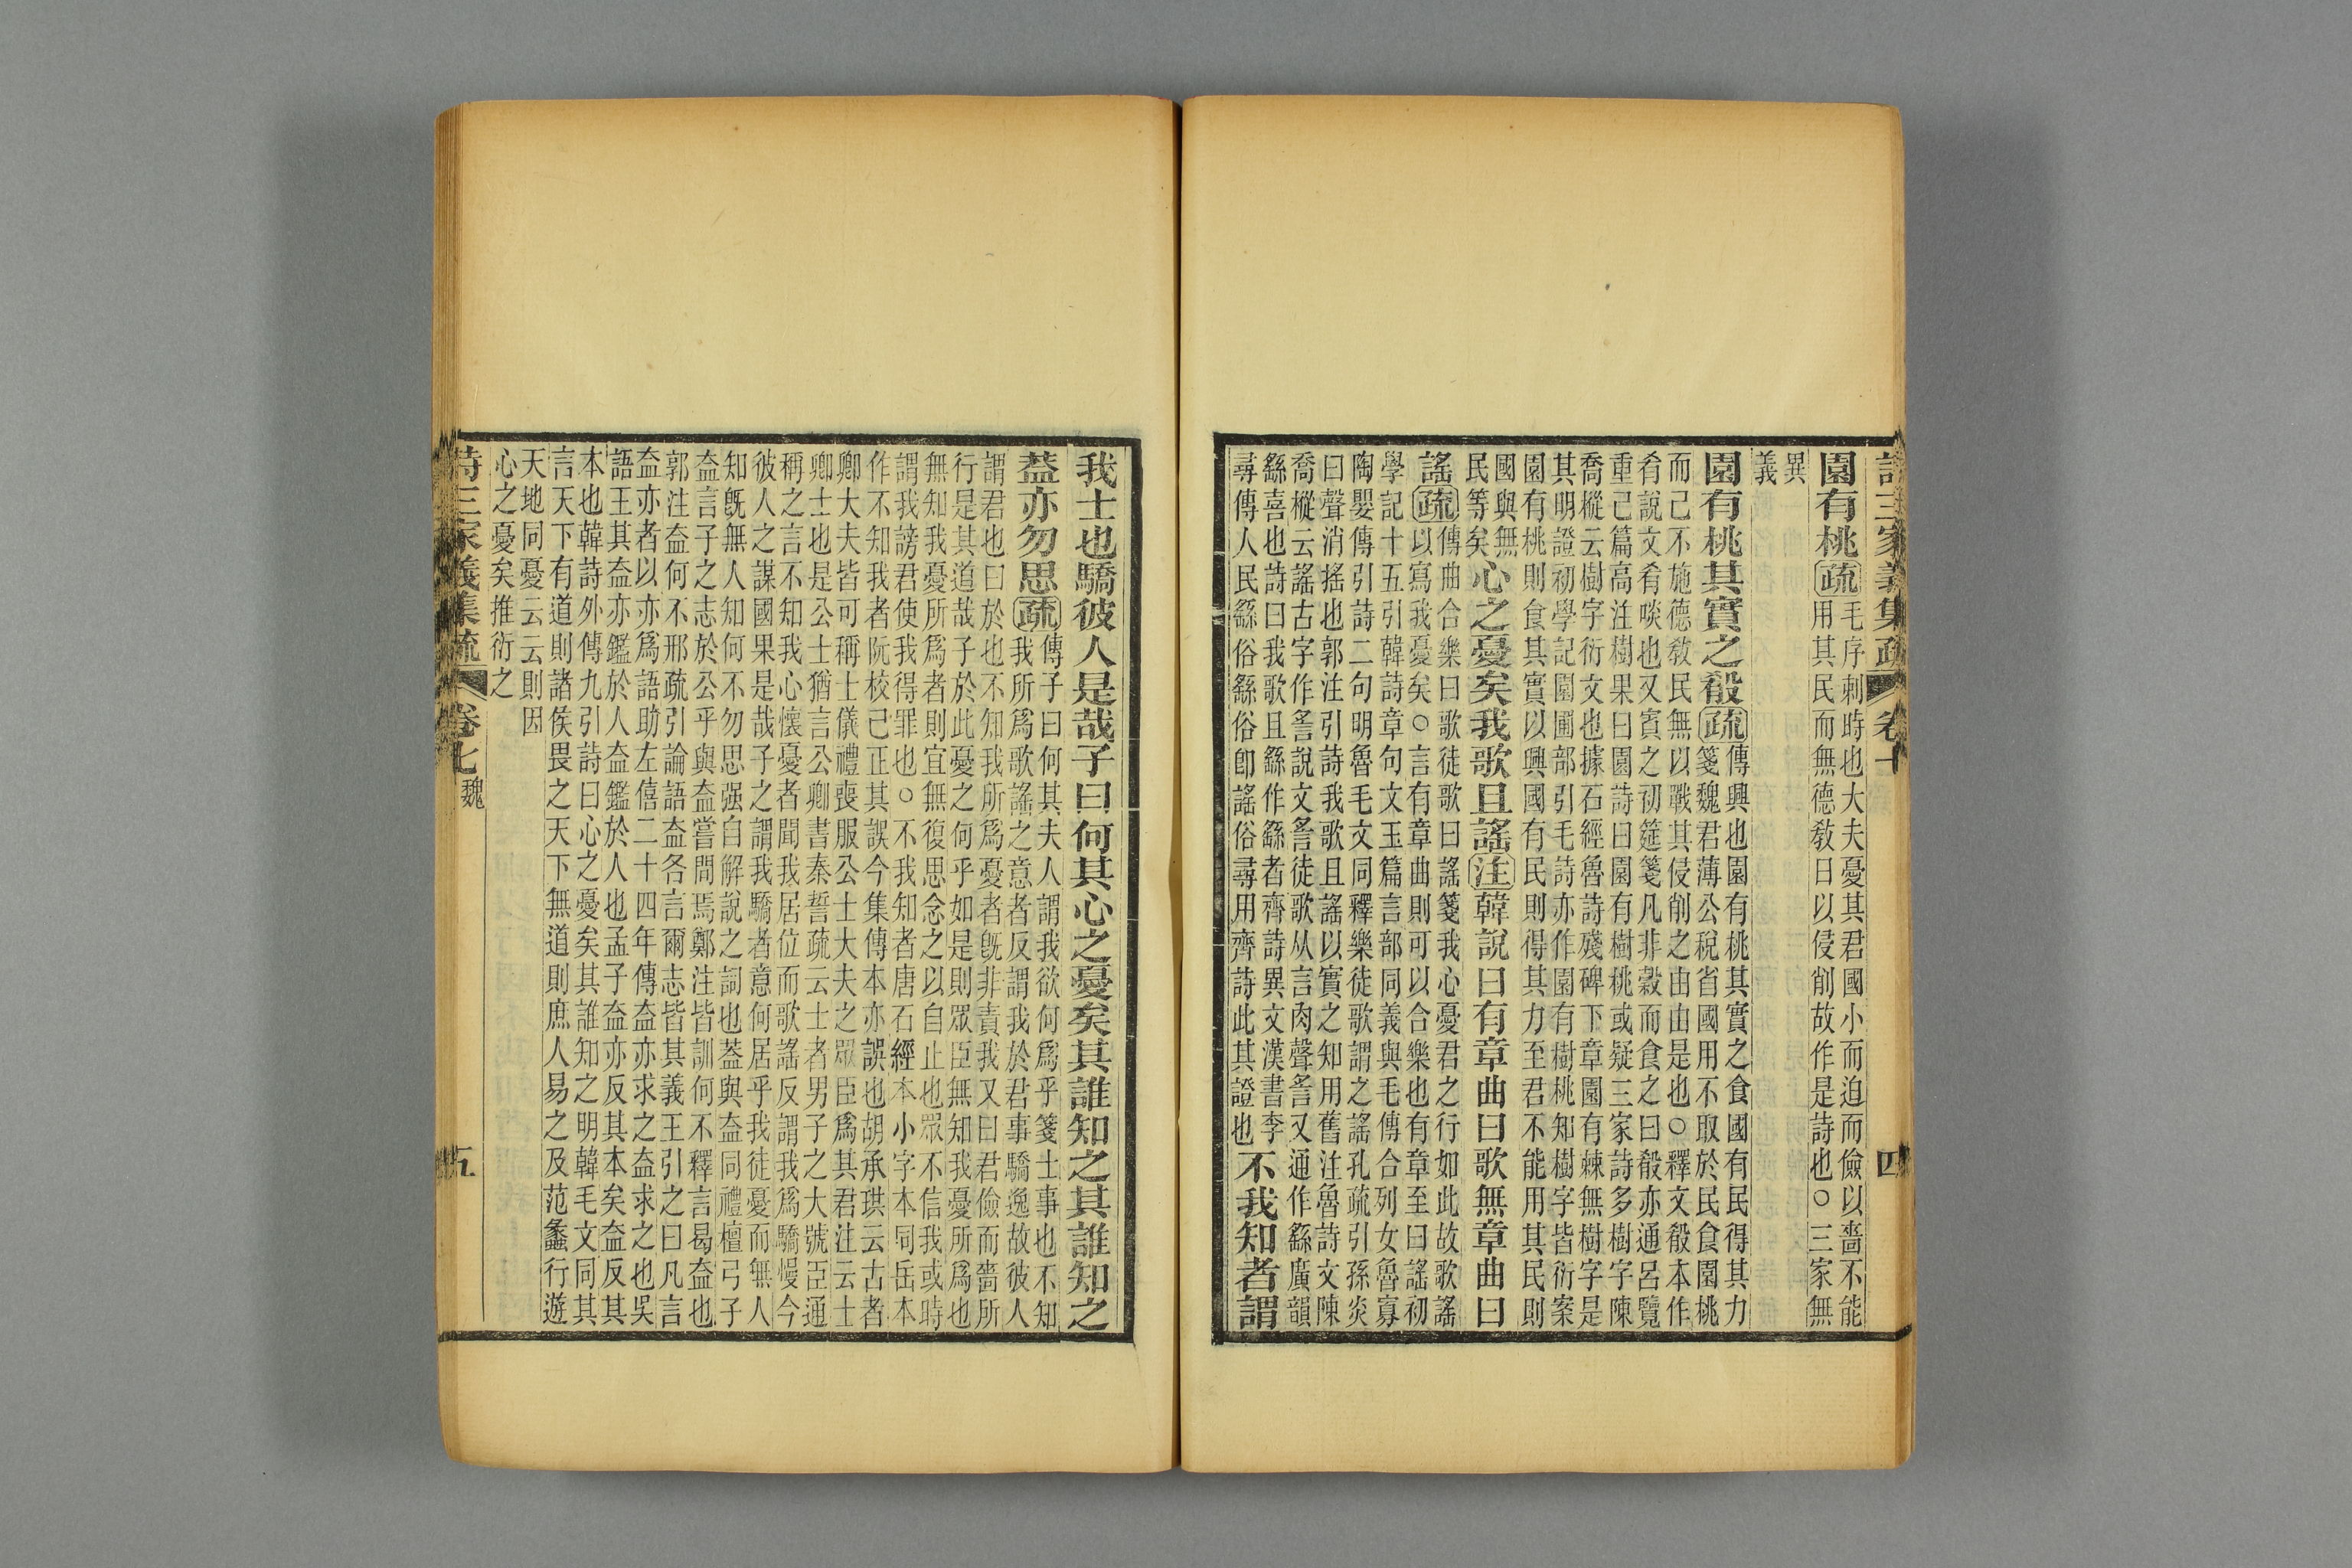 園有桃疏毛序刺時也大夫憂其君國小而迫而儉以嗇不能
用其民而無德敎日以侵削故作是詩也○三家無
異
義
園有桃其實之殽疏傳興也園有桃其實之食國有民得其力
箋魏君薄公稅省國用不取於民食園桃
而已不施德敎民無以戰其侵削之由由是也○釋文殽本作
肴說文肴啖也又賓之初筵箋凡非穀而食之曰殽亦通呂覽
重己篇高注樹果曰園詩曰園有樹桃或疑三家詩多樹字陳
喬樅云樹字衍文也據石經魯詩殘碑下章園有棘無樹字是
其明證初學記園圃部引毛詩亦作園有樹桃知樹字皆衍案
園有桃則食其實以興國有民則得其力至君不能用其民則
國與無
民等矣心之憂矣我歌且謠注韓說曰有章曲曰歌無章曲曰
謠疏傳曲合樂曰歌徒歌曰謠箋我心憂君之行如此故歌謠
以寫我憂矣○言有章曲則可以合樂也有章至曰謠初
學記十五引韓詩章句文玉篇言部同義與毛傳合列女魯寡
陶嬰傳引詩二句明魯毛文同釋樂徒歌謂之謠孔疏引孫炎
曰聲消搖也郭注引詩我歌且謠以實之知用舊注魯詩文陳
喬樅云謠古字作䚻說文䚻徒歌从言肉聲䚻又通作繇廣韻
繇喜也詩曰我歌且繇作繇者齊詩異文漢書李
尋傳人民繇俗繇俗卽謠俗尋用齊詩此其證也不我知者謂
我士也驕彼人是哉子曰何其心之憂矣其誰知之其誰知之
葢亦勿思疏傳子曰何其夫人謂我欲何爲乎箋士事也不知
我所爲歌謠之意者反謂我於君事驕逸故彼人
謂君也曰於也不知我所爲憂者旣非責我又曰君儉而嗇所
行是其道哉子於此憂之何乎如是則眾臣無知我憂所爲也
無知我憂所爲者則宜無復思念之以自止也眾不信我或時
謂我謗君使我得罪也○不我知者唐石經本小字本同岳本
作不知我者阮校已正其誤今集傳本亦誤也胡承珙云古者
卿大夫皆可稱士儀禮喪服公士大夫之眾臣爲其君注云士
卿士也是公士猶言公卿書秦誓疏云士者男子之大號臣通
稱之言不知我心懷憂者聞我居位而歌謠反謂我爲驕慢今
彼人之謀國果是哉子之謂我驕者意何居乎我徒憂而無人
知旣無人知何不勿思强自解說之詞也葢與盍同禮檀弓子
盍言子之志於公乎與盍嘗問焉鄭注皆訓何不釋言曷盍也
郭注盍何不邢疏引論語盍各言爾志皆其義王引之曰凡言
盍亦者以亦爲語助左僖二十四年傳盍亦求之盍求之也吳
語王其盍亦鑑於人盍鑑於人也孟子盍亦反其本矣盍反其
本也韓詩外傳九引詩曰心之憂矣其誰知之明韓毛文同其
言天下有道則諸侯畏之天下無道則庶人易之及范蠡行遊
天地同憂云云則因
心之憂矣推衍之
詩三家義集疏 卷七 魏 五